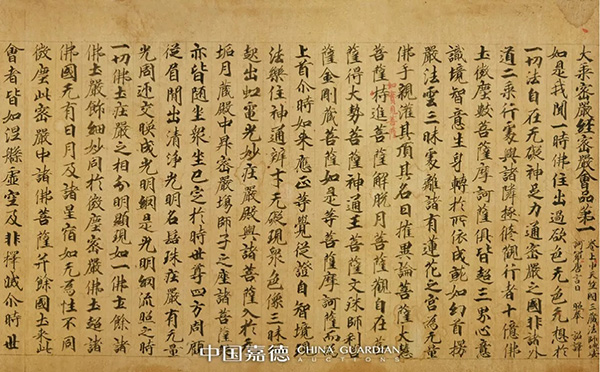 大乘密嚴經密嚴會品第一
如是我聞一時佛住出過欲色无色无想於
一切法自在无礙神足力通密嚴之國非諸外
道二乘行處與諸隣極修觀行者十億佛
土微塵數菩薩摩訶薩俱皆超三界心意
識境智意生身轉於所依成就如幻首楞
嚴法雲三昧離諸有蓮花之宮為无量
佛手親灌其頂其名曰摧異論菩薩大慧
菩薩持進菩薩解脫月菩薩觀自在菩
薩得大勢菩薩神通王菩薩文殊師利菩
薩金剛藏菩薩如是等菩薩摩訶薩而為
上首尒時如來應正等覺從證自智境界
法樂住神通辯才无礙現衆色像三昧
起出虹電光妙莊嚴殿與諸菩薩入於无
垢月藏殿中昇密嚴場師子之座諸菩薩
亦皆隨坐衆坐已定於時世尊四方周顧
從眉間出清淨光明名髻珠莊嚴有无量
光周遍交暎成光明網是光明網流照之時
一切佛土莊嚴之相分明顯現如一佛土餘諸
佛土嚴飾細妙同於微塵密嚴佛土超諸
佛國无有日月及諸星宿如无為性不同
微塵此密嚴中諸佛菩薩并餘國土來此
會者皆如涅槃虛空及非擇滅尒時世
中国嘉德 CHINA GUARDIAN
AUCTIONS